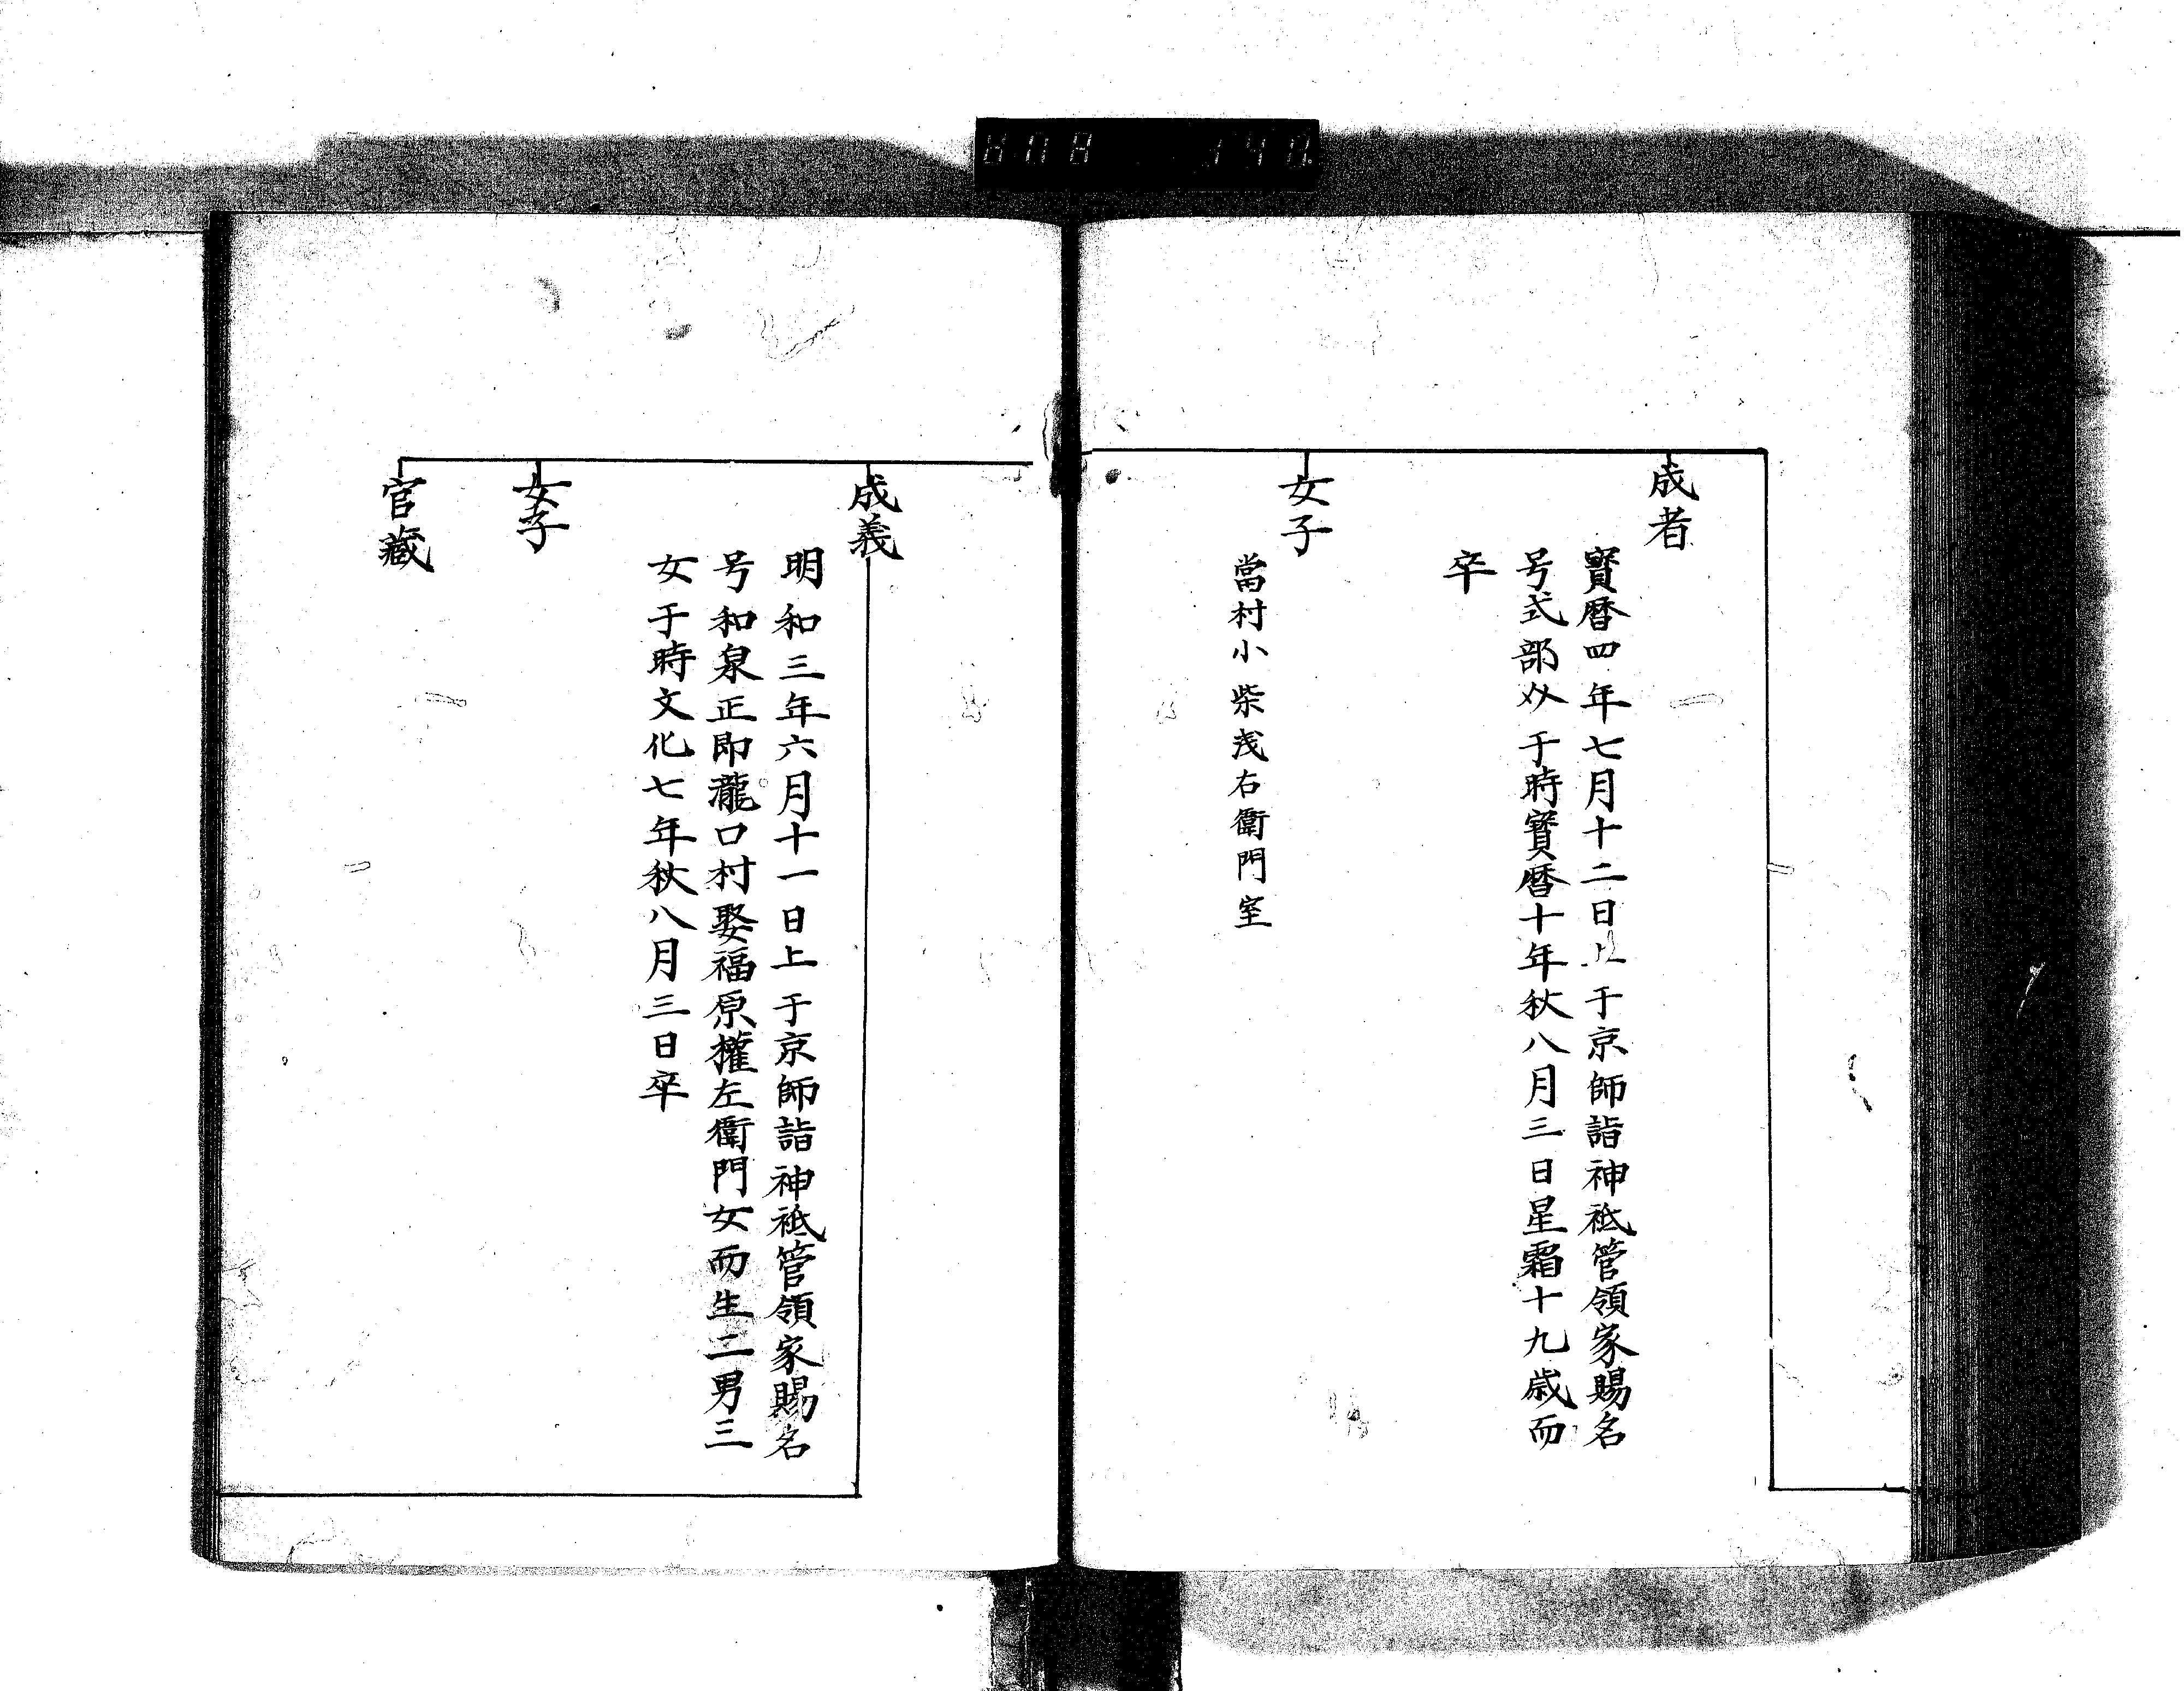 成者
寳暦四年七月十二日上于京師詣神祇管領家賜名
号式部以于時寳暦十年秋八月三日星霜十九歳而
卒
女子
當村小柴浅右衛門室
成義
明和三年六月十一日上于京師詣神祇管領家賜名
号和泉正即瀧口村娶福原權左衛門女而生二男三
女于時文化七年秋八月三日卒
女子
官藏